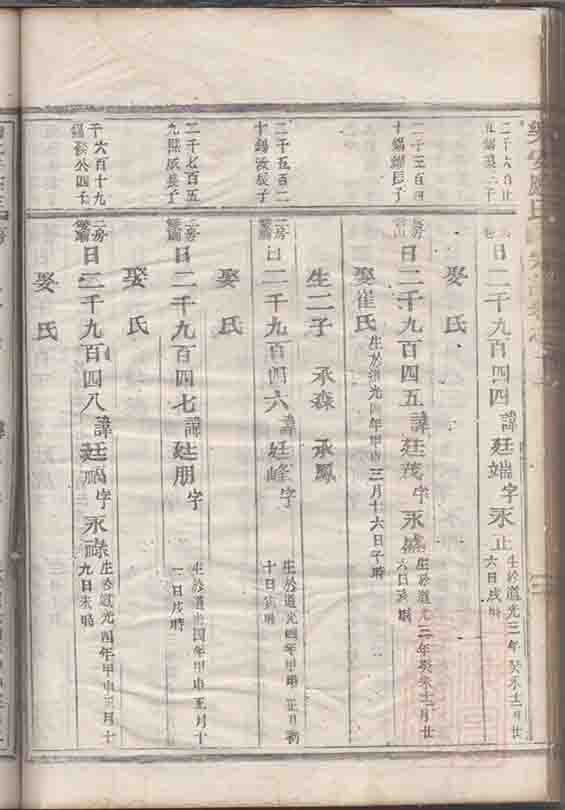 二千六百廿
日二千九百四四諱廷端字永止
生於道光三年癸未十二月廿
六日戌時
娶氏
二千三百四
日二千九百四五諱廷茂字永盛
生於道光三年癸未十二月廿
六日戌時
娶崔氏
生於道光四年甲申三月十六日子時
生二子 承森 承鳳
二千五百二
十錫汝長子
二房
日二千九百四六諱廷峰字
生於道光四年甲申正月初
十日亥時
娶氏
二千七百五
九際成長子
二房
日二千九百四七諱廷朋字
生於道光四年甲申五月十
一日戌時
娶氏
千六百十九
公四子
二房
日二千九百四八諱廷鵬字永祿
生於道光四年甲申三月十
九日未時
娶氏